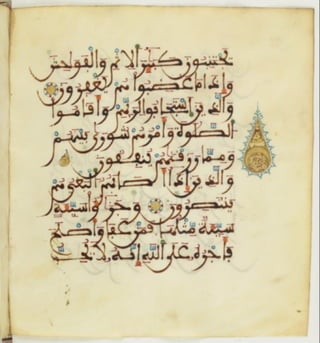 يجتنبون كبير الاثم والفواحش
واذا ما غضبوا هم يغفرون
والذين استجابوا لربهم واقاموا
الصلوة وامرهم شورى بينهم
ومما رزقنهم ينفقون
والذين اذا اصابهم البغي هم
ينتصرون وجزؤا سيئة
سيئة مثلها فمن عفا واصلح
فاجره على الله انه لا يحب